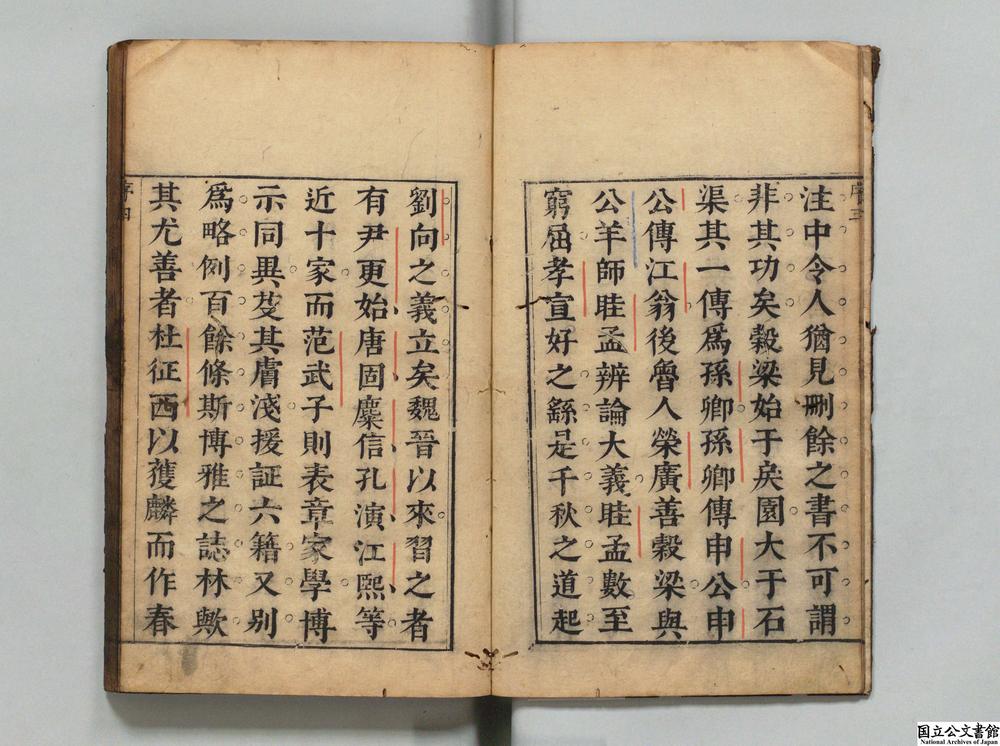 序三
注中令人猶見刪餘之書不可謂
非其功矣穀梁始于戾園大于石
渠其一傳爲孫卿孫卿傳申公申
公傳江翁後魯人榮廣善穀梁與
公羊師眭孟辨論大義眭孟數至
窮屈孝宣好之繇是千秋之道起
劉向之義立矣魏晉以來習之者
有尹更始唐固麋信孔演江熙等
近十家而范武子則表章家學博
示同異芟其膚淺援証六籍又别
爲略例百餘條斯博雅之誌林歟
其尤善者杜征西以獲麟而作春
序四
国立公文書館
National Archives of Japan